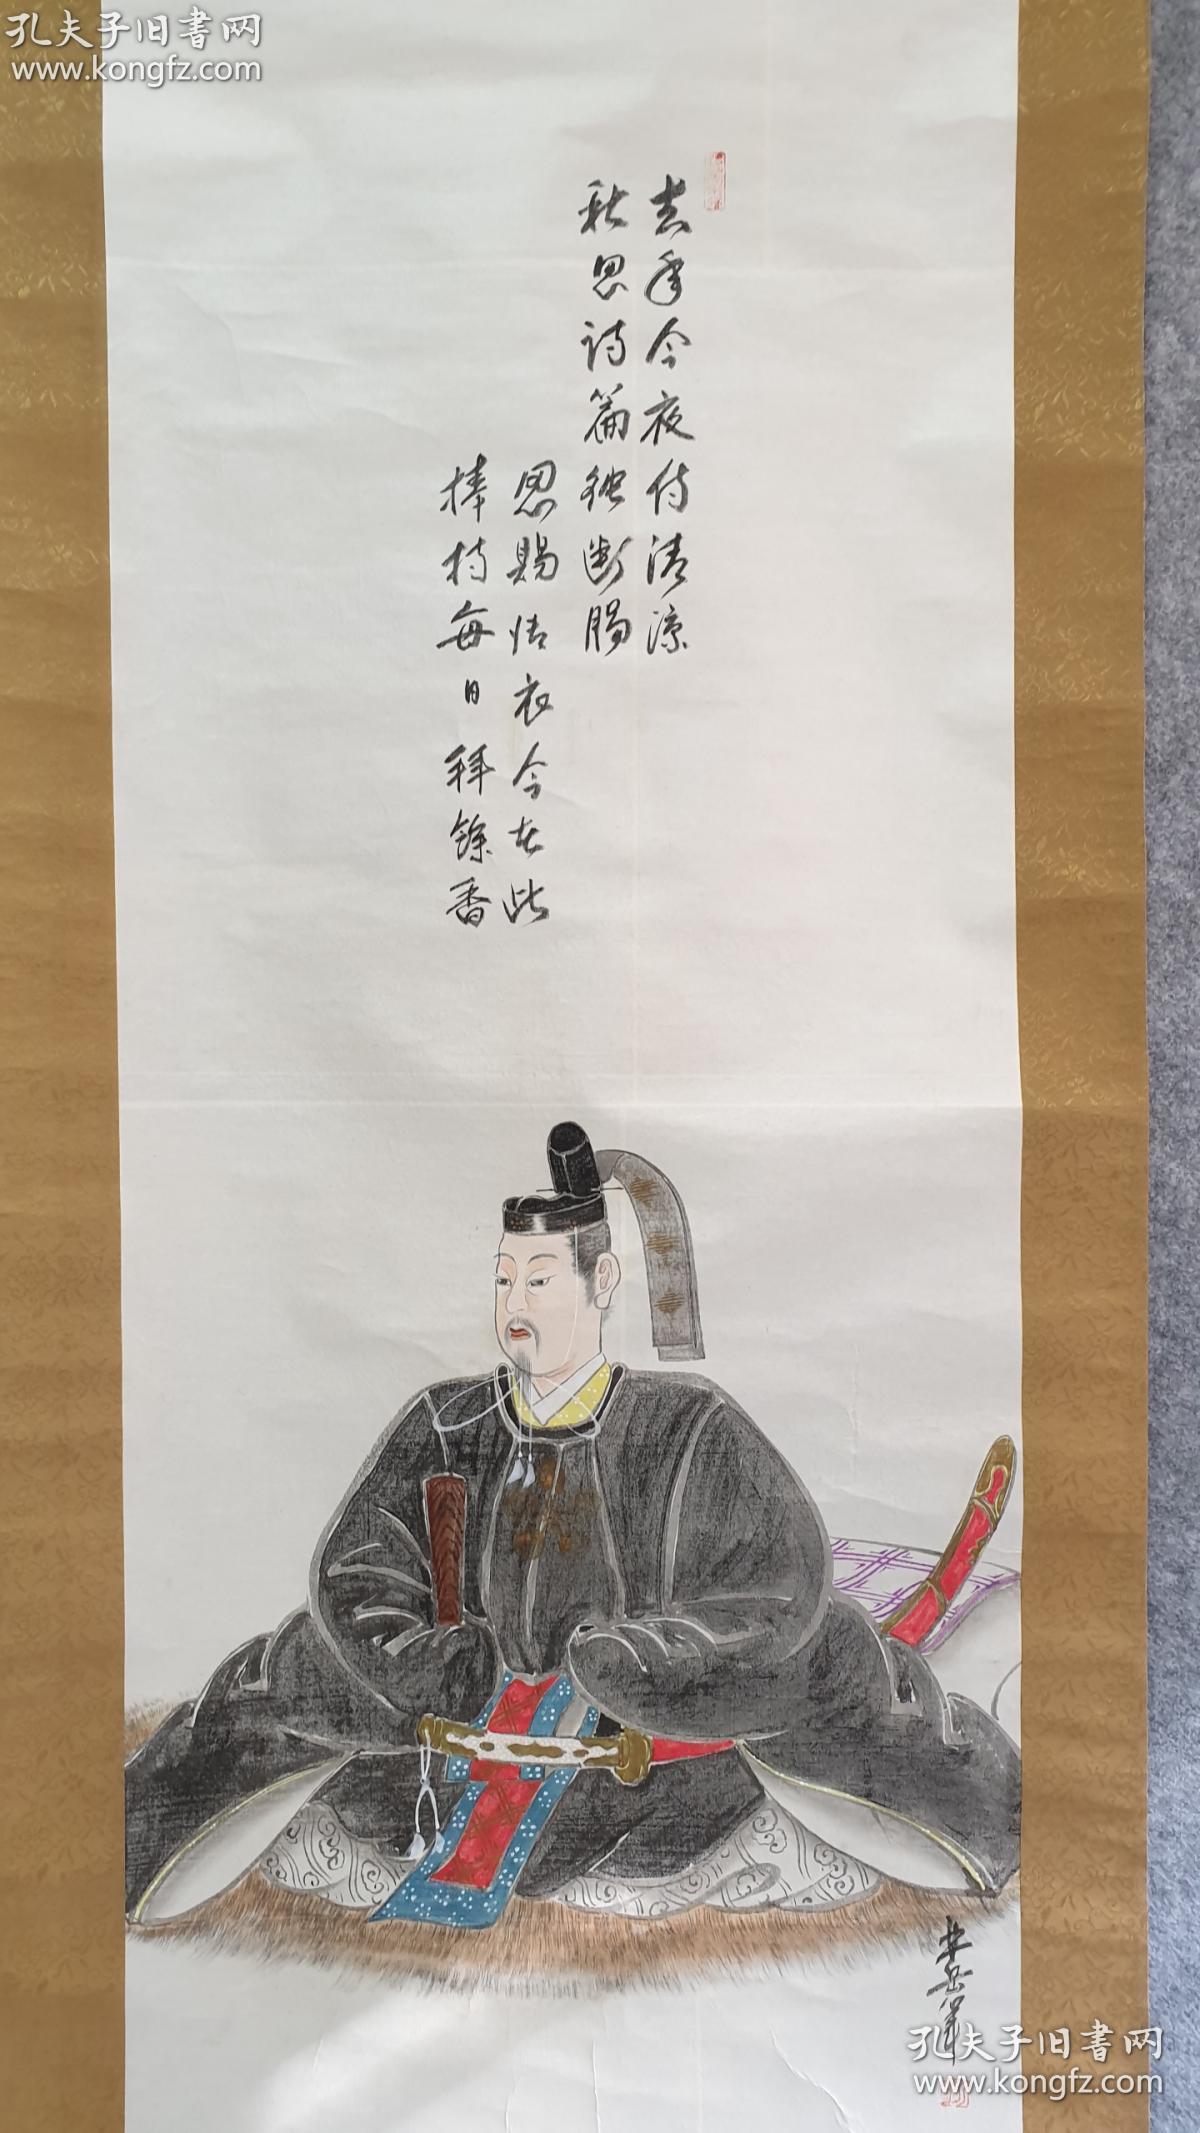 孔夫子旧書网
www.kongfz.com
去年今夜侍清涼
秋思詩篇独断腸
恩賜情衣今在此
捧持每日拝餘香
岳筆
孔夫子旧書网
www.kongfz.com